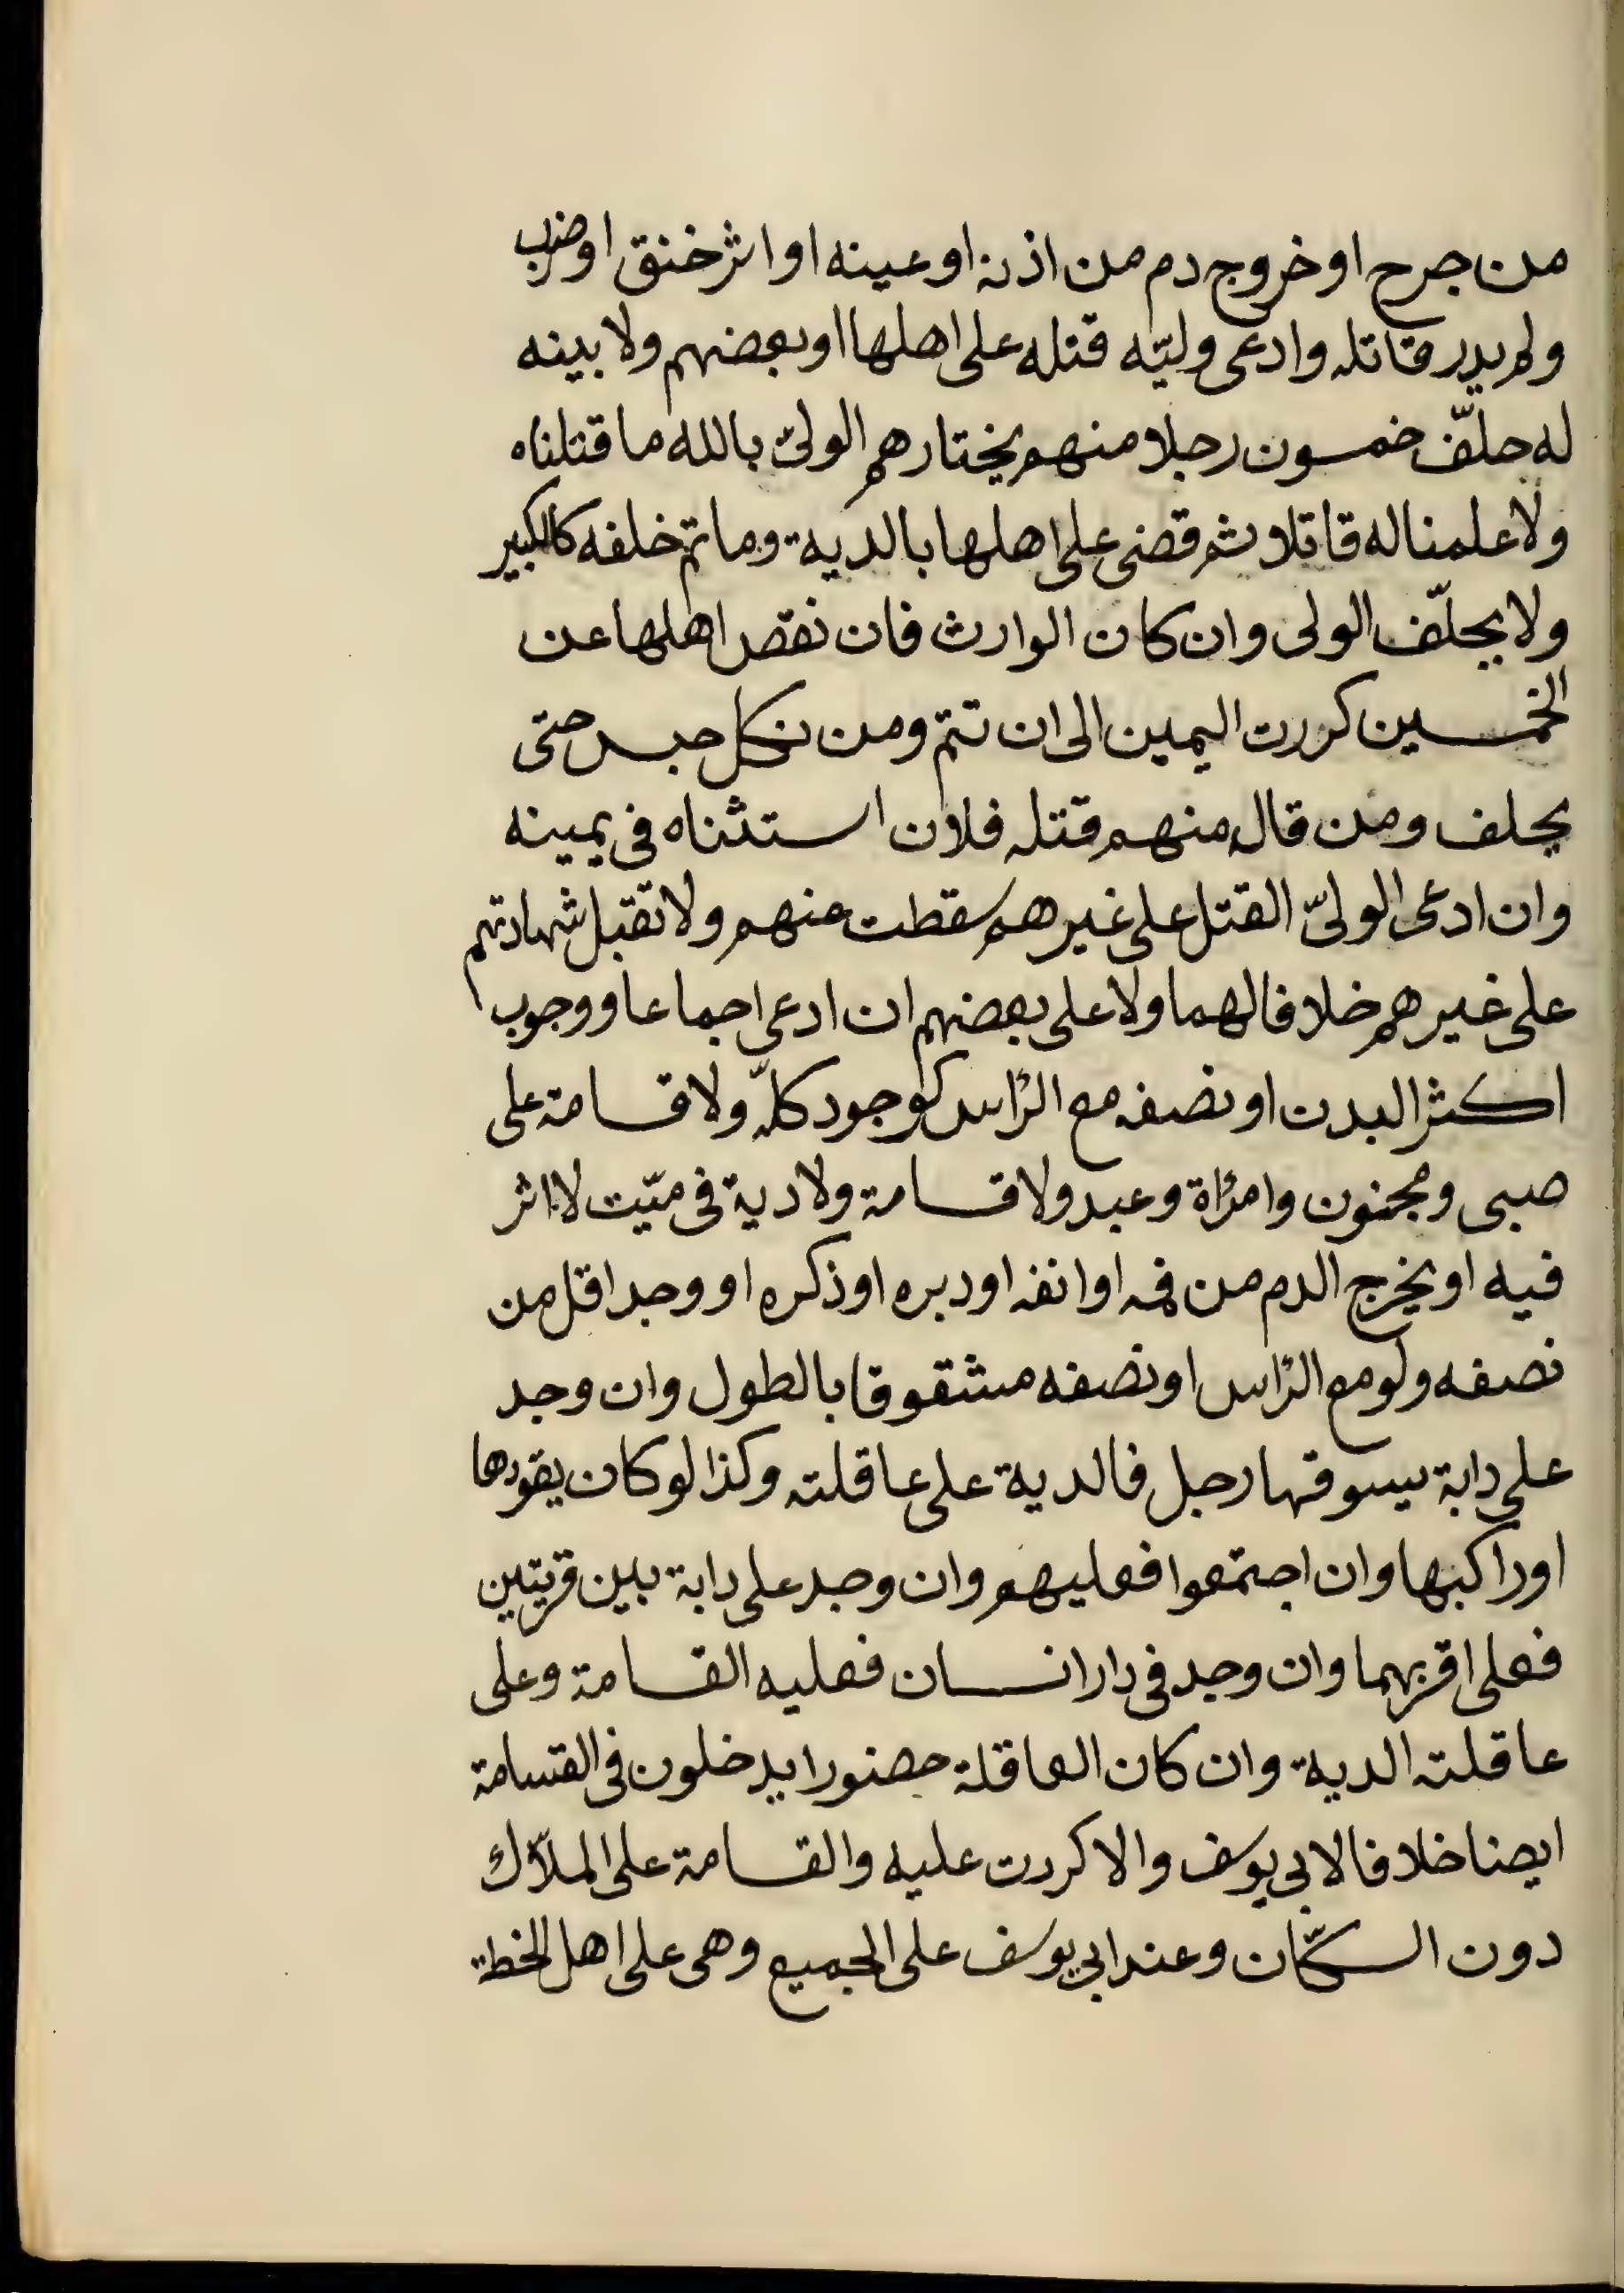 من جرح او خروج دم من اذنه او عينه او اثر خنق او ضرب
ولم يدر قاتله وادعى وليّه قتله على اهلها او بعضهم ولا بينه
له حلّف خمسون رجلا منهم يختارهم الولىّ بالله ما قتلناه
ولا علمنا له قاتلا ثم قضى على اهلها بالدية وما تم خلفه كالكبير
ولا يحلّف الولى وان كان الوارث فان نقص اهلها عن
الخمسين كررت اليمين الى ان تتم ومن نكل حبس حتى
يحلف ومن قال منهم قتله فلان استثناه فى يمينه
وان ادعى الولىّ القتل على غيرهم سقطت منهم ولا تقبل شهادتهم
على غيرهم خلافا لهما ولا على بعضهم ان ادعى اجماعا ووجوب
اكثر البدن او نصفه مع الرّأس كوجود كلّه ولا قسامة على
صبى ومجنون وامرأة وعبد ولا قسامة ولا دية فى ميّت لا اثر
فيه او يخرج الدم من فمه او انفه او دبره او ذكره او وجد اقل من
نصفه ولو مع الرّأس او نصفه مشقوقا بالطول وان وجد
على دابة يسوقها رجل فالدية على عاقلته وكذا لو كان يقودها
او راكبها وان اجتمعوا فعليهم وان وجد على دابة بين قريتين
فعلى اقربهما وان وجد فى دار انسان فعليه القسامة وعلى
عاقلته الدية وان كان العاقلة حضورا يدخلون فى القسامة
ايضا خلافا لابى يوسف والا كررت عليه والقسامة على الملّاك
دون السكّان وعند ابى يوسف على الجميع وهى على اهل الخطة